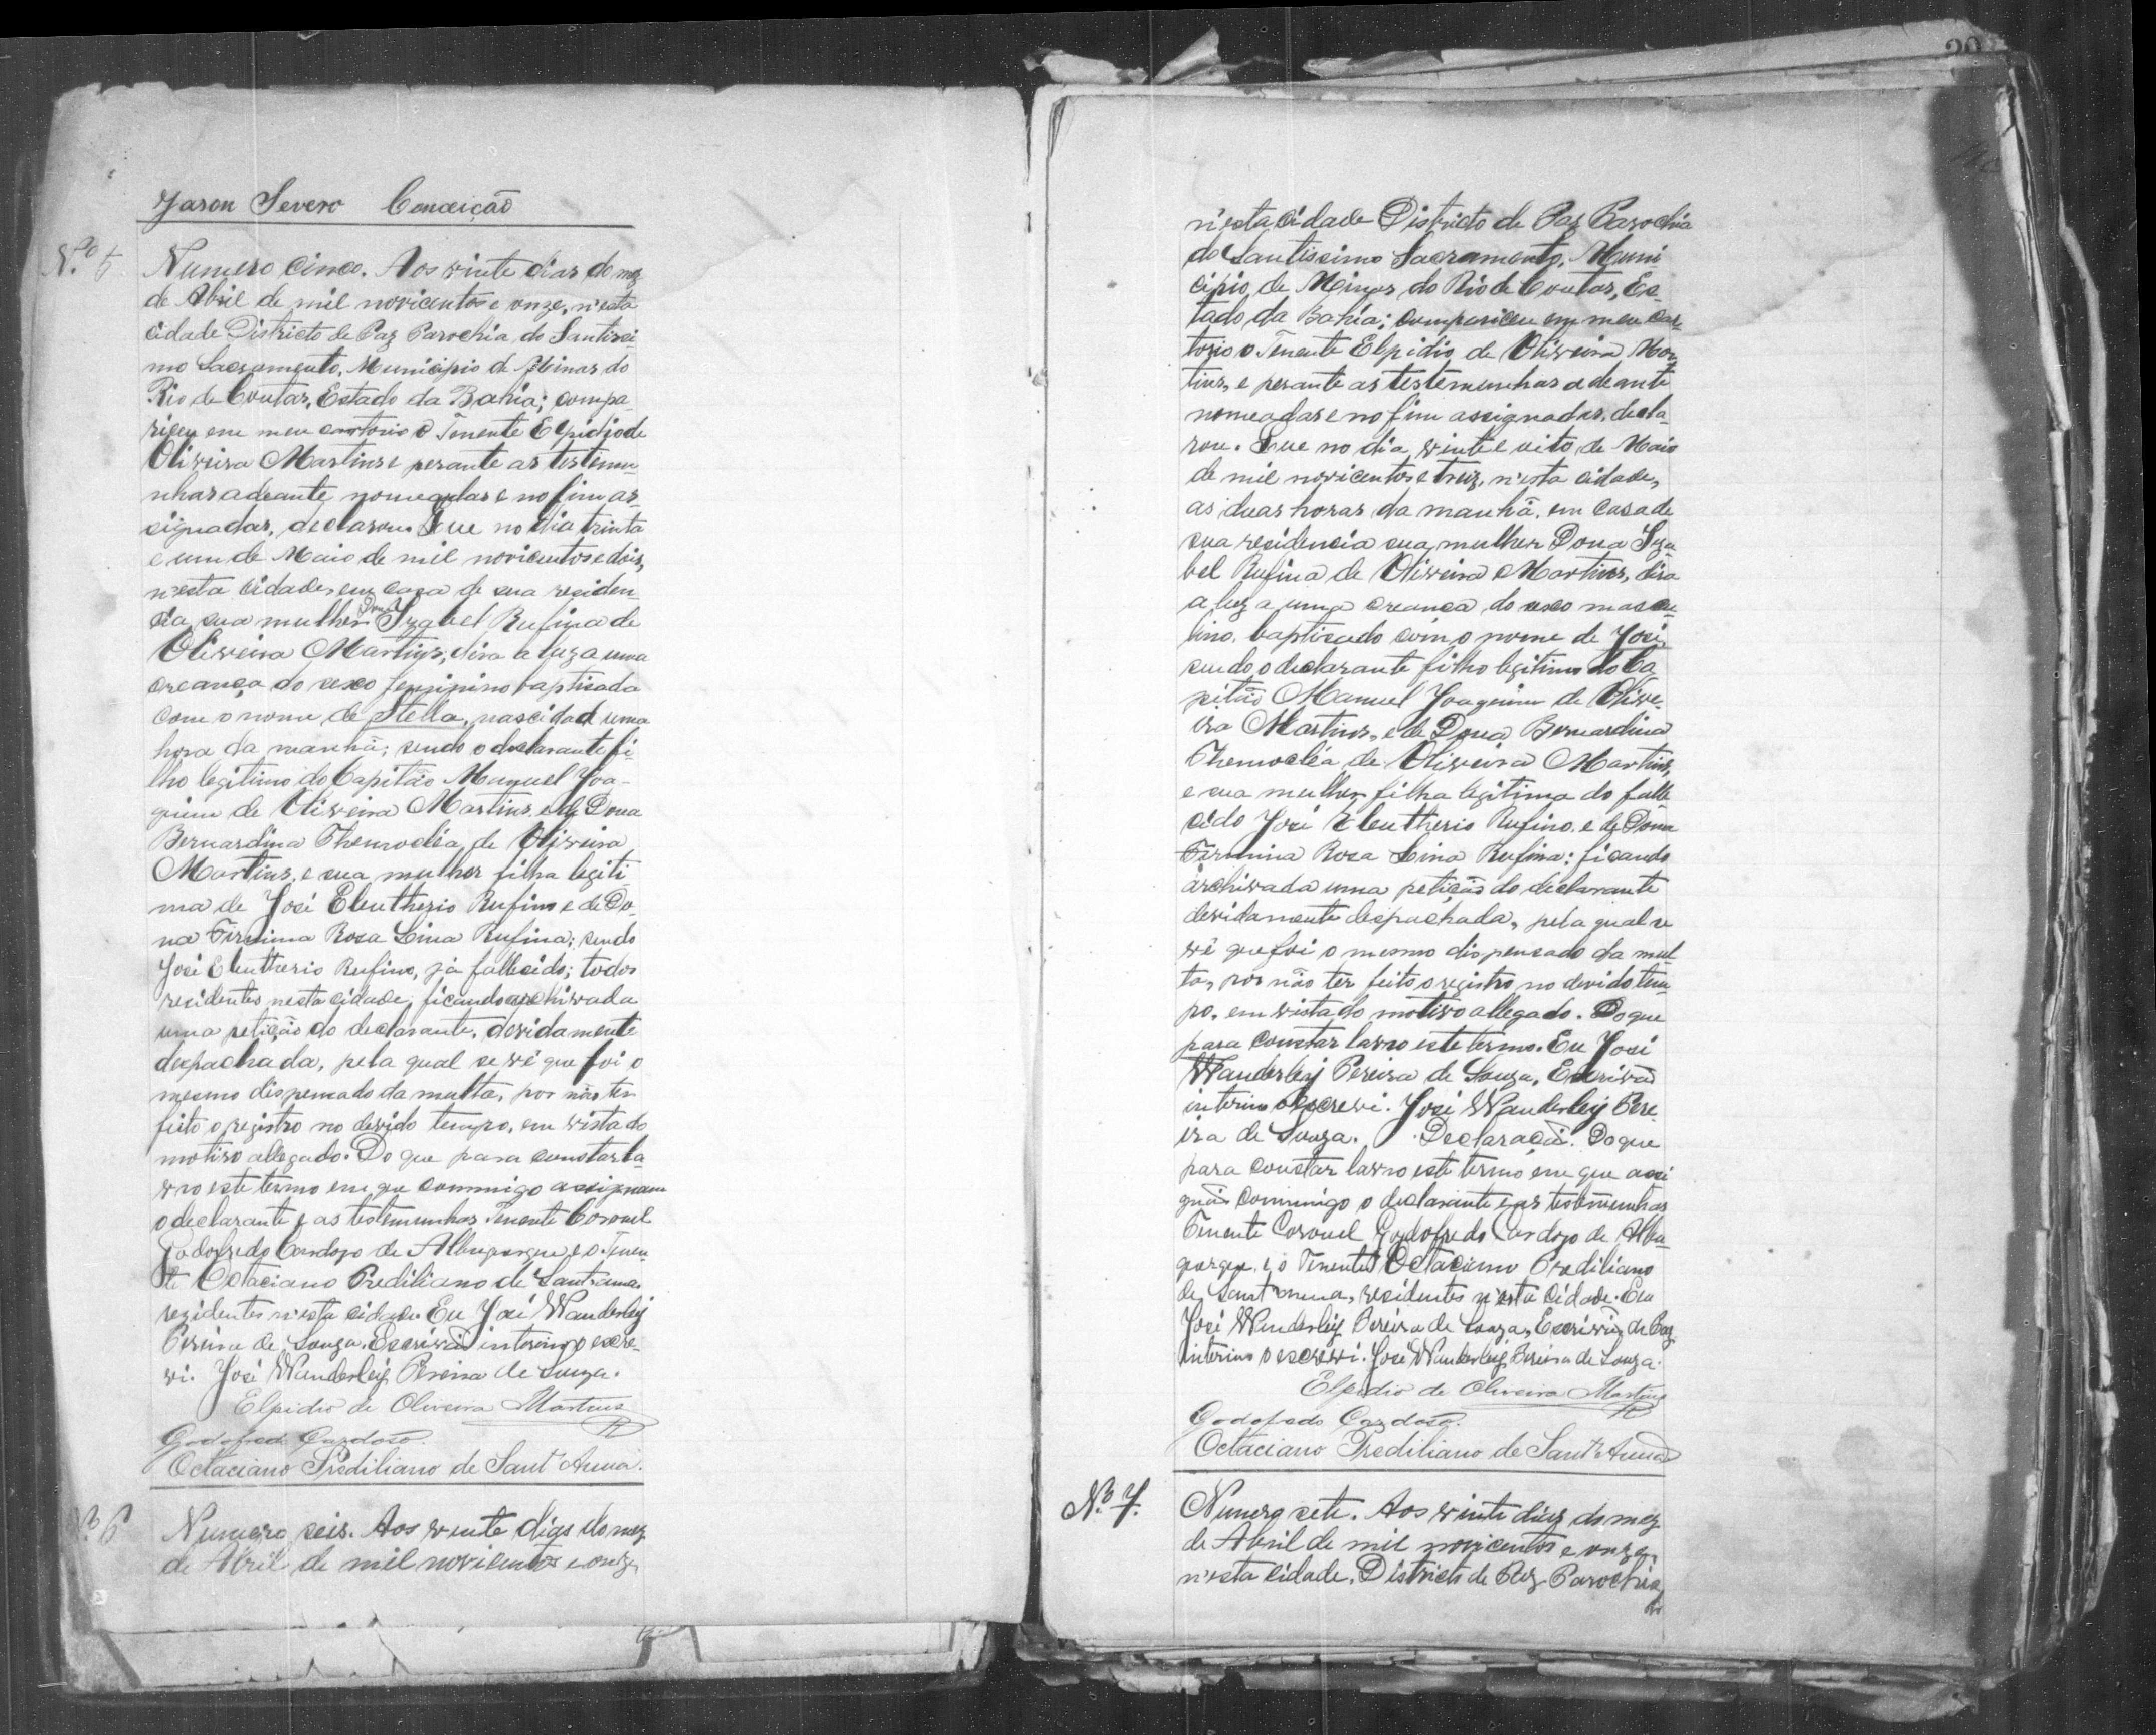 Jason Severo Conceição
N.º 5
Numero cinco. Aos vinte dias do mez
de Abril de mil novicentos e onze, n'esta
cidade Districto de Paz Parochia do Santissi-
mo Sacramento, Municipio de Minas do
Rio de Contas, Estado da Bahia; compa-
riceu em meu cartorio o Tenente Elpidio de
Oliveira Martins e perante as testemu-
nhas adeante nomeadas e no fim as-
signadas, declarou Que no dia trinta
e um de Maio de mil novicentos e dois,
n'esta cidade, em casa de sua residen-
cia, sua mulher Dona Izabel Rufina de
Oliveira Martins, dira a luz a uma
creança do sexo feminino baptisada
com o nome de Stella, nascida á uma
hora da manhã; sendo o declarante fi-
lho legitimo do Capitão Manuel Joa-
quim de Oliveira Martins, e de Dona
Bernardina Themoclea de Oliveira
Martins, e sua mulher filha legiti
ma de José Eleutherio Rufino e de Do-
na Firmina Rosa Lina Rufina; sendo
José Eleutherio Rufino, já fallecido; todos
residentes nesta cidade, ficando archivada
uma petição do declarante, devidamente
despachada, pela qual se vê que foi o
mesmo dispensado da multa, por não ter
feito o registro no devido tempo, em vista do
motivo allegado. Do que para constar la-
vro este termo em que commigo assignam
o declarante e as testemunhas Tenente Coronel
Godofredo Cardozo de Albuquerque e o Tenen-
te Octaciano Prediliano de Sant'anna,
rezidentes n'esta cidade. Eu José Wanderley
Pereira de Souza, Escrivão interino o escre-
vi. José Wanderley Pereira de Souza.
Elpidio de Oliveira Martins
Godofredo Cardoso.
Octaciano Prediliano de Sant'Anna.
N.º 6
Numero seis. Aos vinte dias do mez
de Abril de mil novicentos e onze,
n'esta cidade Districto de Paz Parochia
do Santissimo Sacramento, Muni
cipio de Minas do Rio de Contas, Es-
tado da Bahia; compariceu em meu car
torio o Tenente Elpidio de Oliveira Mar
tins, e perante as testemunhas adeante
nomeadas e no fim assignadas, decla-
rou. Que no dia vinte e oito de Maio
de mil novicentos e trez, n'esta cidade,
as duas horas da manhã, em casa de
sua residencia sua mulher Dona Iza
bel Rufina de Oliveira Martins, dira
a luz a uma creança do sexo mascu
lino, baptisado com o nome de José,
sendo o declarante filho legitimo do Ca
pitão Manuel Joaquim de Olivei-
ra Martins, e de Dona Bernardina
Themocléa de Oliveira Martins,
e sua mulher filha legitima do falle
cido José Eleutherio Rufino, e de Dona
Firmina Rosa Lina Rufina; ficando
archivada uma petição do declarante
devidamente despachada, pela qual se
vê que foi o mesmo dispensado da mul
ta, por não ter feito o registro no devido tem
po, em vista do motivo allegado. Do que
para constar lavro este termo. Eu José
Wanderley Pereira de Souza, Escrivão
interino o escrevi. José Wanderley Perei
ra de Souza. Declaração. Do que
para constar lavro este termo em que assi
gnão commigo o declarante e as testemunhas
Tenente Coronel Godofredo Cardozo de Albu-
querque, e o Tenente Octaciano Prediliano
de Sant'anna, residentes n'esta cidade. Eu
José Wanderley Pereira de Souza, Escrivão de Paz
interino o escrevi. José Wanderley Pereira de Souza.
Elpidio de Oliveira Martins
Godofredo Cardoso.
Octaciano Prediliano de Sant'Anna
N.º 7.
Numero sete. Aos vinte dias do mez
de Abril de mil novicentos e onze,
n'esta cidade, Districto de Paz Parochia